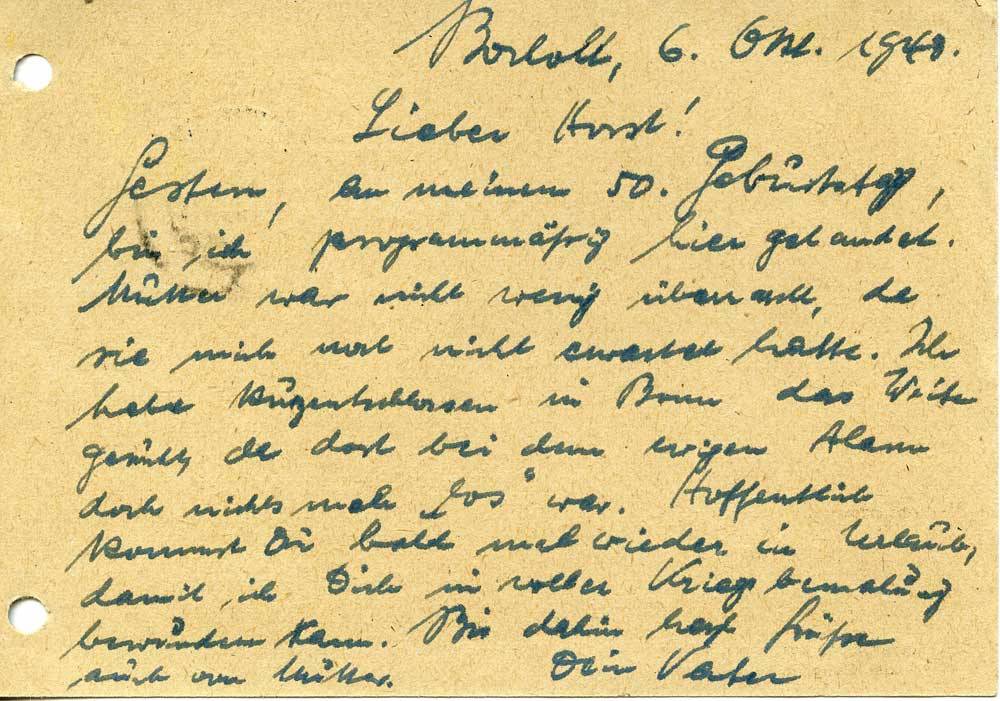 Bocholt, 6. Okt. 194
Lieber Horst!
Gestern, an meinem 50. Geburtstag,
bin ich programmäßig hier gelandet.
Mutter war nicht wenig überrascht, da
sie mich noch nicht erwartet hatte. Ich
habe kurzentschlossen in Bonn das Weite
gesucht, da dort bei dem ewigen Alarm
doch nichts mehr „los" war. Hoffentlich
kommst Du bald mal wieder in Urlaub,
damit ich Dich in voller Kriegsbemalung
bewundern kann. Bis dahin herzl. Grüße
auch von Mutter. Dein Vater